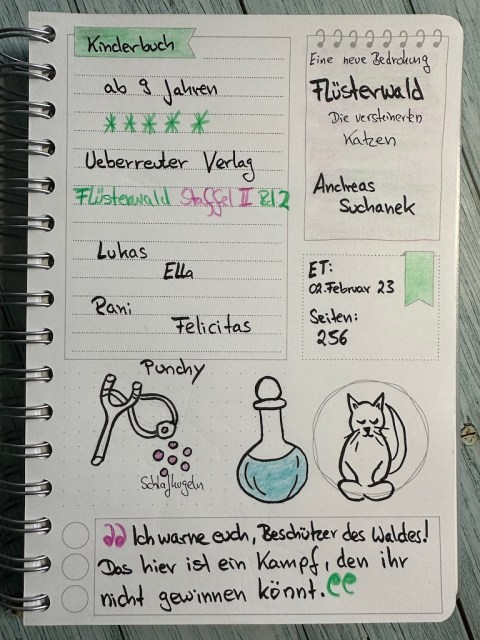 Kinderbuch
ab 9 Jahren
Ueberreuter Verlag
Flüsterwald Staffel II Bd 2
Lukas
Ella
Rani
Felicitas
Eine neue Bedrohung
Flüsterwald
Die versteinerten
Katzen
Andreas
Suchanek
ET:
02. Februar 23
Seiten:
256
Punchy
Schlafkugeln
"Ich warne euch, Beschützer des Waldes!
Das hier ist ein Kampf, den ihr
nicht gewinnen könnt."